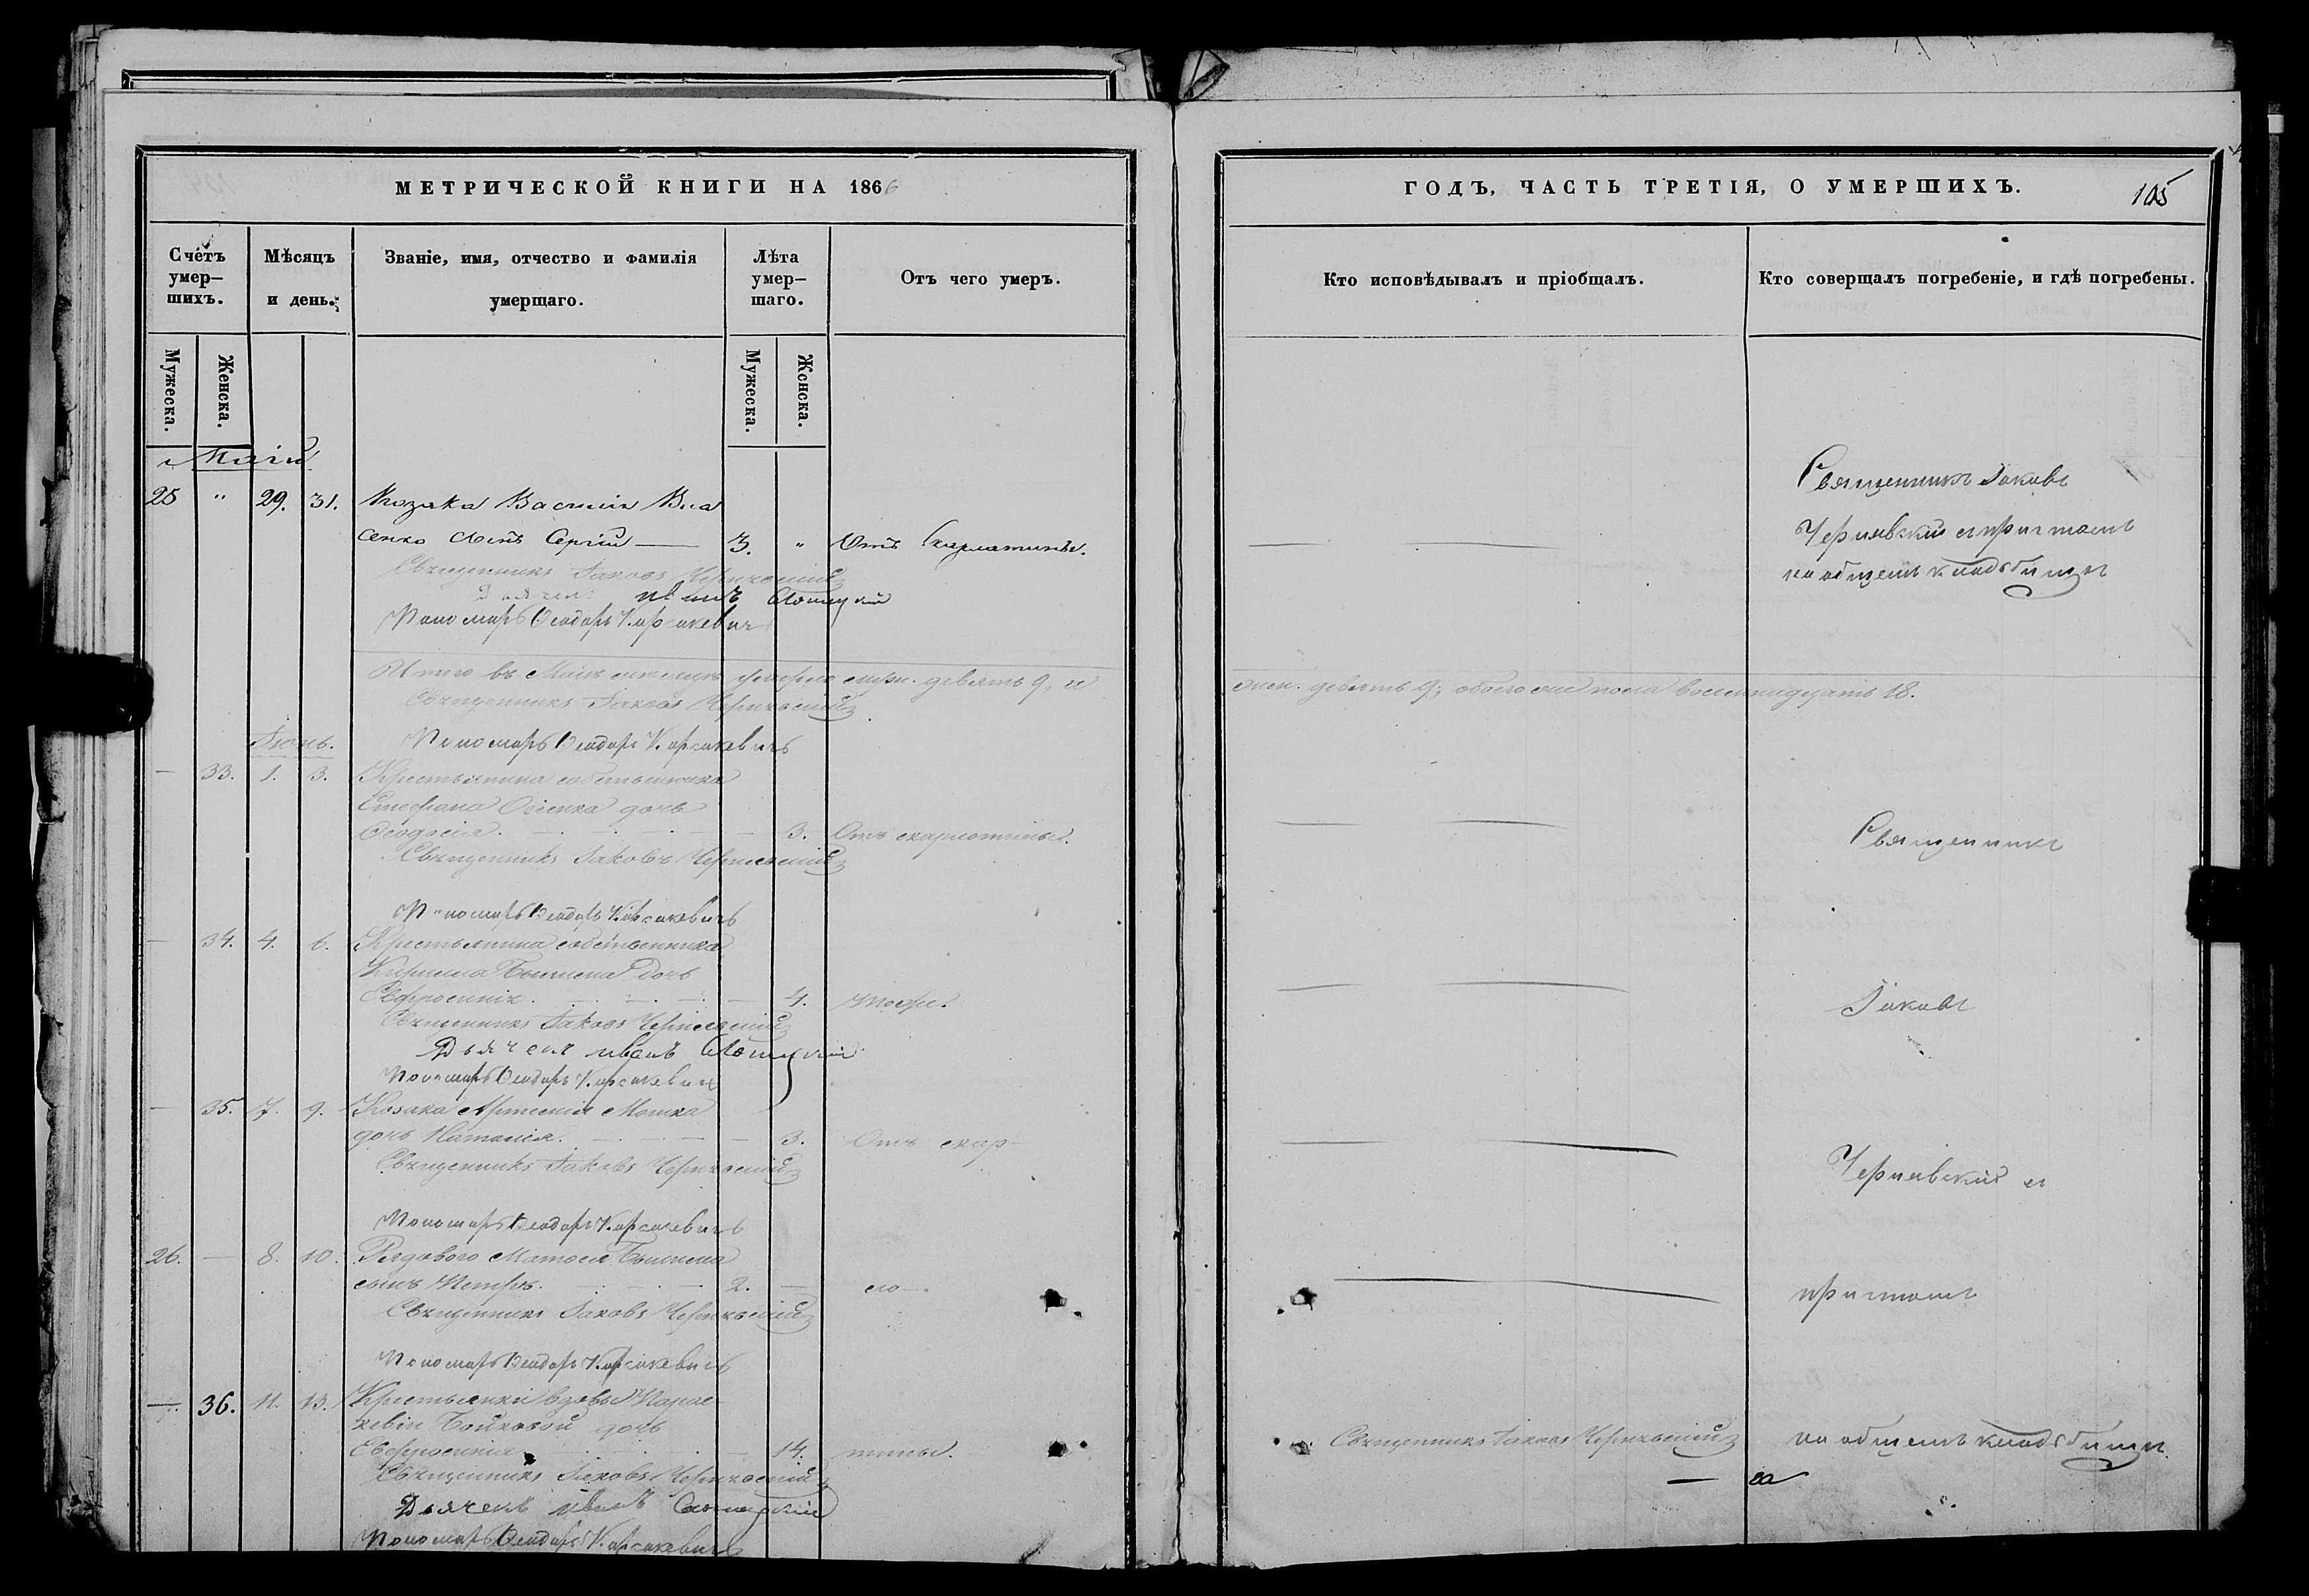 МЕТРИЧЕСКОЙ КНИГИ НА 1866
ГОДЪ, ЧАСТЬ ТРЕТІЯ, О УМЕРШИХЪ.
105
Счётъ умер-шихъ.
Мѣсяцъ и день.
Званіе, имя, отчество и фамилія умершаго.
Лѣта умер-шаго.
Отъ чего умеръ.
Кто исповѣдывалъ и пріобщалъ.
Кто совершалъ погребеніе, и гдѣ погребены.
Мужеска.
Женска.
Мужеска.
Женска.
Маій
25 " 29. 31. Козака Василія Вла
сенко сынъ Сергій — 3. " Отъ скарлатины.
Священникъ Іаковъ Чернявскій
Дьячекъ Иванъ
Пономарь Ѳеодоръ Карсакевичъ
Священникъ Іаковъ
Чернявскій съ причтомъ
на общемъ кладбищѣ
Итого въ Маіѣ мѣсяцѣ умерло муж. девять 9, и
жен. девять 9; обоего пола восемнадцать 18.
Священникъ Іаковъ Чернявскій
Пономарь Ѳеодоръ Карсакевичъ
Іюнь.
— 33. 1. 3. Крестьянина собственника
Стефана Огіенка дочь
Ѳеодосія. — 3. Отъ скарлатины.
Священникъ Іаковъ Чернявскій
Пономарь Ѳеодоръ Карсакевичъ
Священникъ
— 34. 4. 6. Крестьянина собственника
Кирилла дочь
Евфросинія. — 4. тоже.
Священникъ Іаковъ Чернявскій
Дьячекъ Иванъ
Пономарь Ѳеодоръ Карсакевичъ
Іаковъ
— 35. 7. 9. Козака
дочь Наталія. — 3. Отъ скар-
Священникъ Іаковъ Чернявскій
Пономарь Ѳеодоръ Карсакевичъ
Чернявскій съ
26. — 8. 10. Рядового
сынъ Петръ. — 2. — ла-
Священникъ Іаковъ Чернявскій
Пономарь Ѳеодоръ Карсакевичъ
причтомъ
— 36. 11. 13. Крестьянки вдовы Парас-
кевіи Бойковой дочь
Евфросинія — 14. тины.
Священникъ Іаковъ Чернявскій
на общемъ кладбищѣ
Священникъ Іаковъ Чернявскій
Дьячекъ Иванъ
Пономарь Ѳеодоръ Карсакевичъ